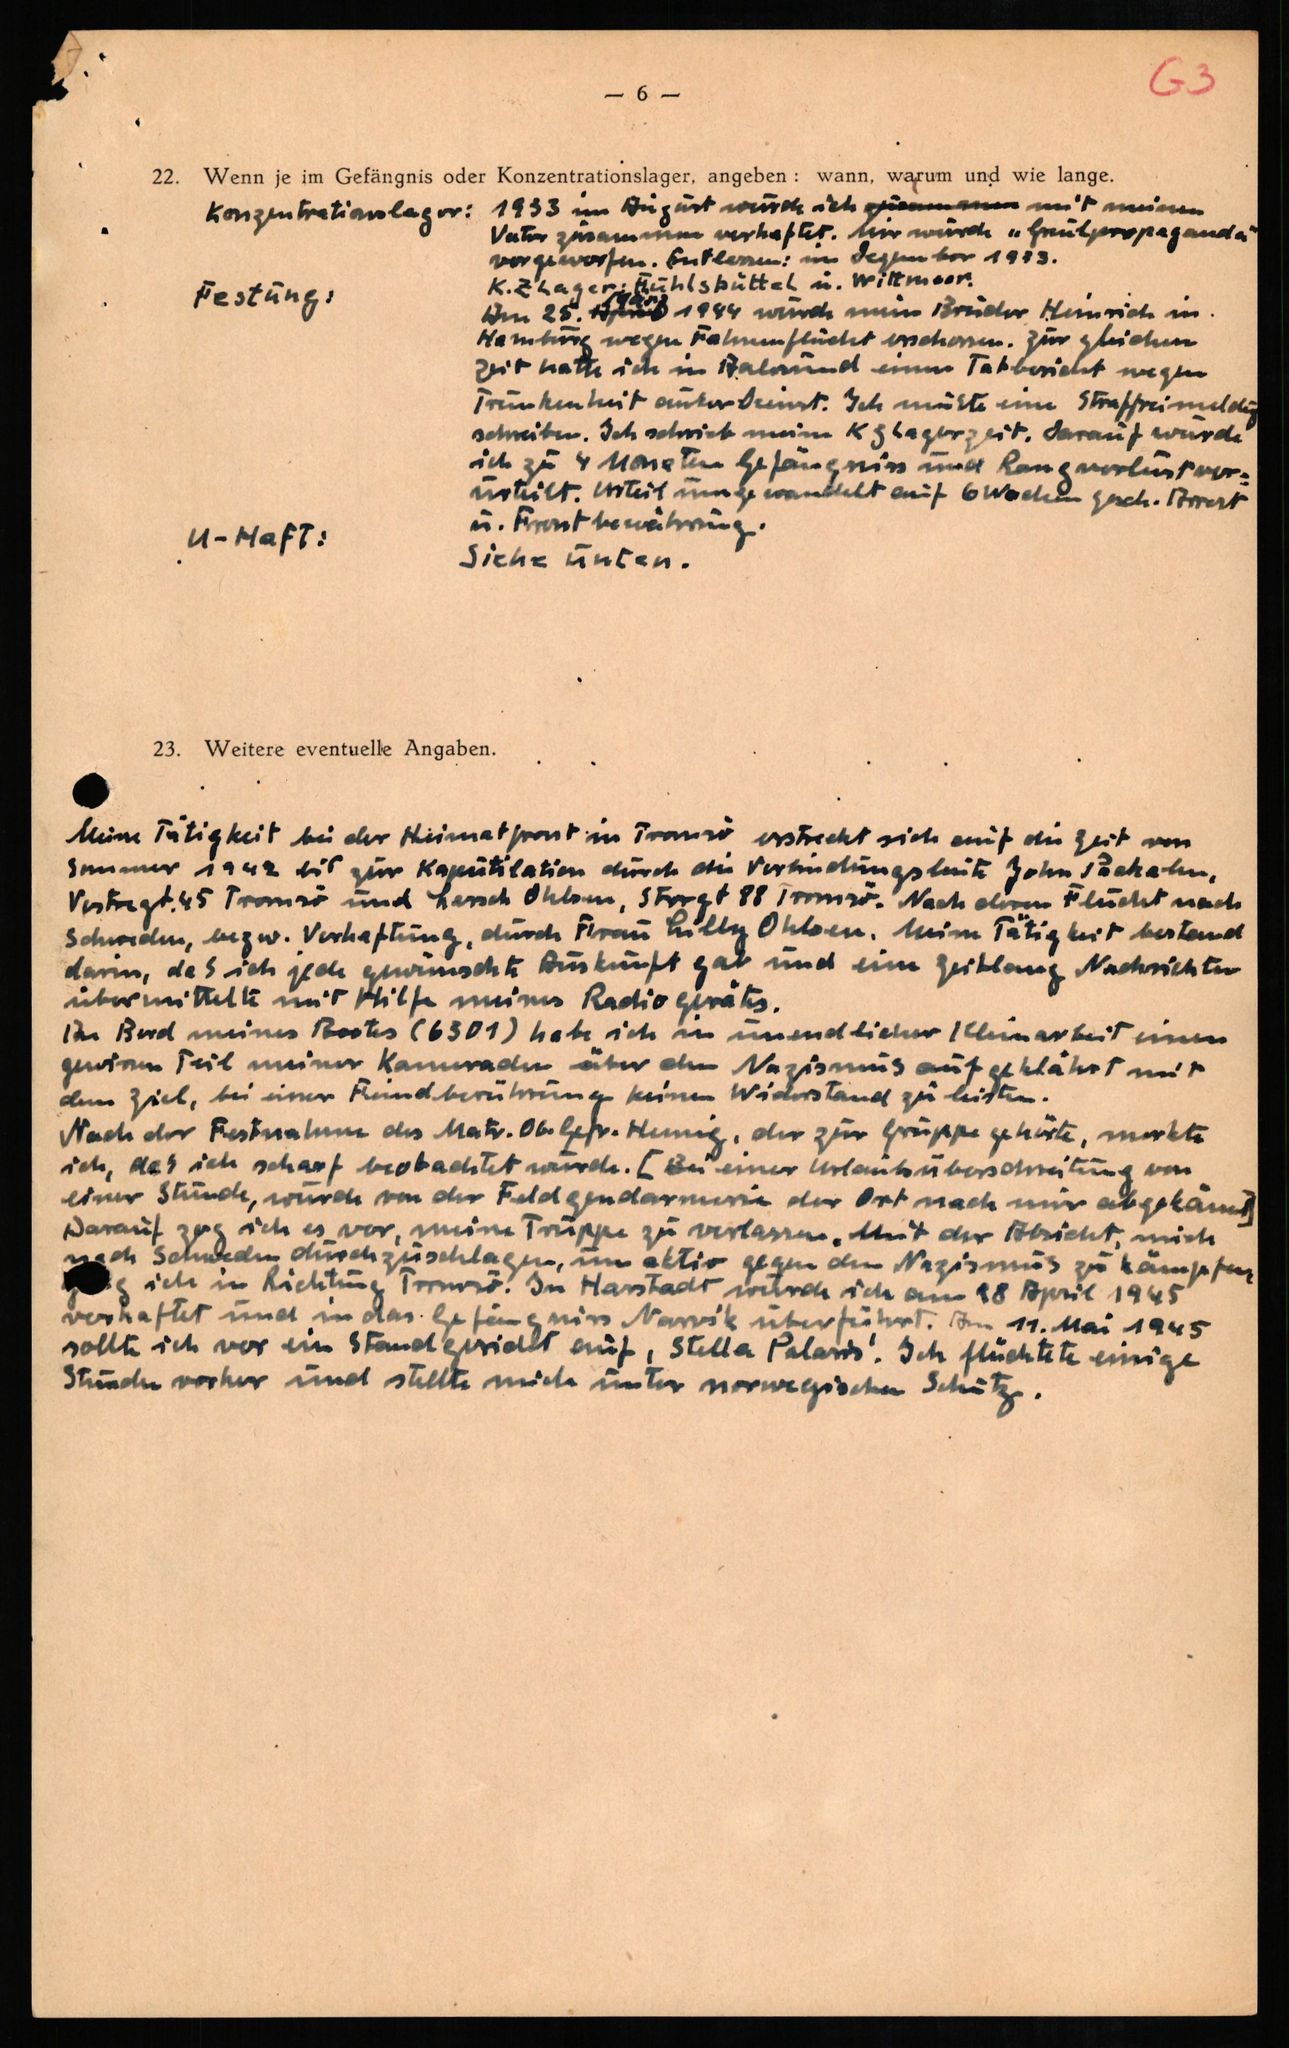 G3
— 6 —
22. Wenn je im Gefängnis oder Konzentrationslager, angeben: wann, warum und wie lange.
Konzentrationslager: 1933 im August wurde ich zusammen mit meinem
Vater zusammen verhaftet. Mir wurde „Greulpropaganda"
vorgeworfen. Entlassen: im Dezember 1933.
K.Z Lager: Fühlsbüttel u. Wittmoor.
Festung:
Am 25. März 1944 wurde mein Bruder Heinrich in
Hamburg wegen Fahnenflucht erschossen. Zur gleichen
Zeit hatte ich in einen Tatbericht wegen
Trunkenheit außer Dienst. Ich mußte eine Straffreimeldg
schreiben. Ich schrieb meine KZ Lagerzeit. Darauf wurde
ich zu 4 Monaten Gefängniss und Rangverlust ver-
urteilt. Urteil umgewandelt auf 6 Wochen gesch. Arrest
u. Frontbewährung.
U-Haft: Siehe unten.
23. Weitere eventuelle Angaben.
Meine Tätigkeit bei der Heimatfront in Tromsö erstreckt sich auf die Zeit von
Sommer 1942 bis zur Kaputilation durch die Verbindungsleute John
45 Tromsö und Ohlsen, Storgt 88 Tromsö. Nach deren Flucht nach
Schweden, bezw. Verhaftung, durch Frau Lilly Ohlsen. Meine Tätigkeit bestand
darin, daß ich jede gewünschte Auskunft gab und eine Zeitlang Nachrichten
übermittelte mit Hilfe meines Radiogerätes.
An Bord meines Bootes (6301) habe ich in unendlicher Kleinarbeit einen
gewissen Teil meiner Kameraden über den Nazismus aufgeklährt mit
dem Ziel, bei einer Feindberührung keinen Widerstand zu leisten.
Nach der Festnahme des Matr. Ob. Gefr. Hennig, der zur Gruppe gehörte, merkte
ich, daß ich scharf beobachtet wurde. [Bei einer Urlaubsüberschreitung von
einer Stunde, wurde von der Feldgendarmerie der Ort nach mir abgekämt]
Darauf zog ich es vor, meine Truppe zu verlassen. Mit der Absicht, mich
nach Schweden durchzuschlagen, um aktiv gegen den Nazismus zu kämpfen,
ich in Richtung Tromsö. In Harstadt wurde ich am 18 April 1945
verhaftet und in das Gefängniss Narvik überführt. Am 11. Mai 1945
sollte ich vor ein Standgericht auf, Stella Polaris'. Ich flüchtete einige
Stunden vorher und stellte mich unter norwegischen Schutz.